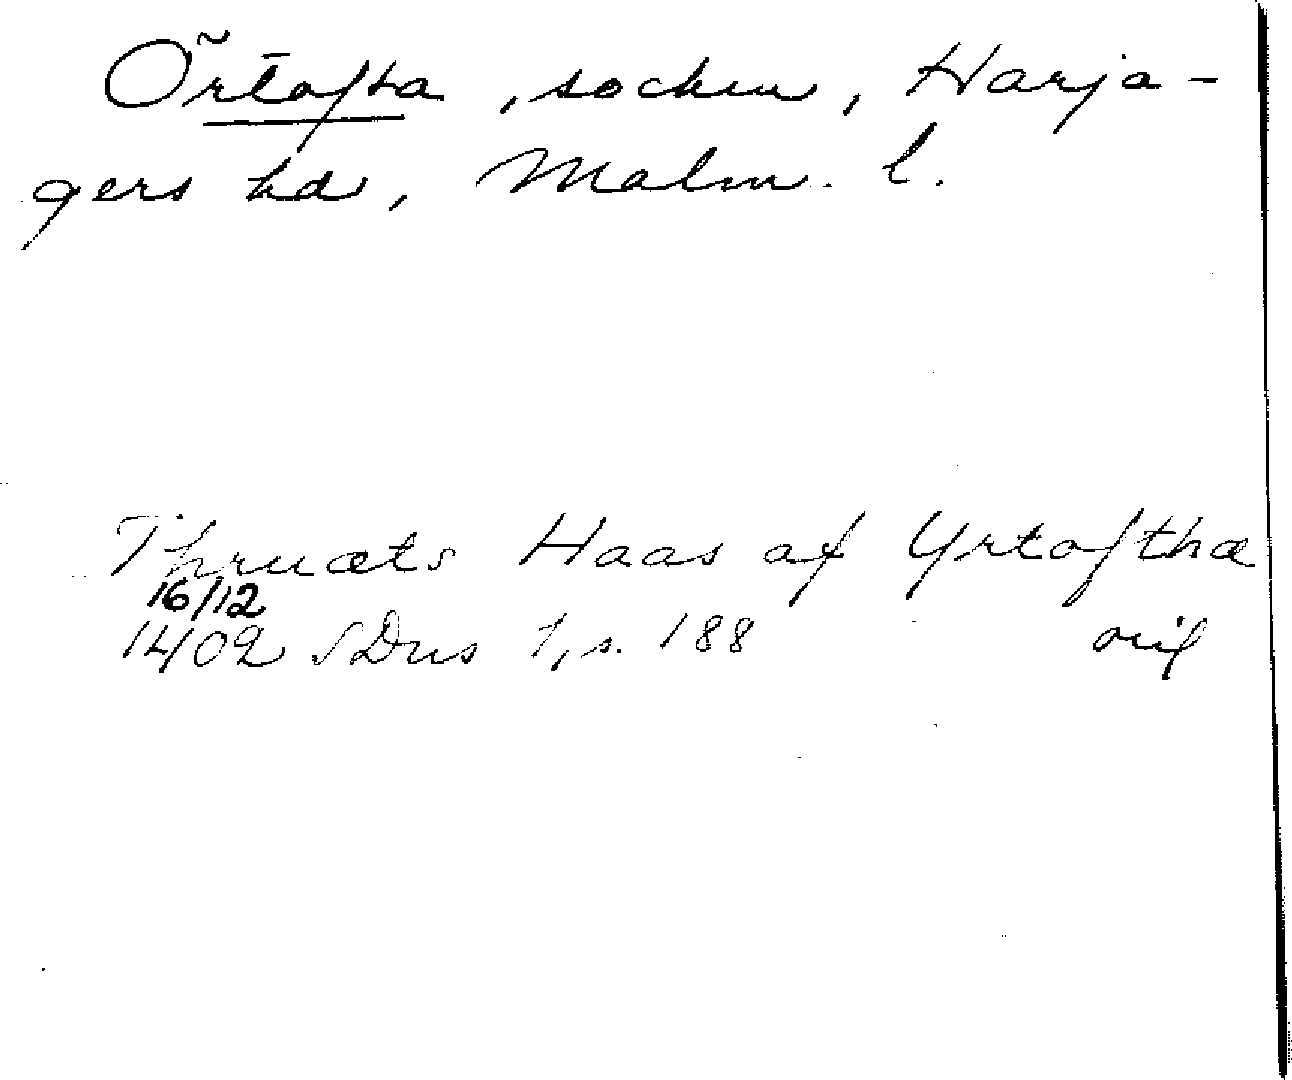 Örtofta, socken, Harja-
gers hd, Malm. l.
Thruæts Haas af Yrtofthæ
16/12
1402 SDns 1, s. 188 orig